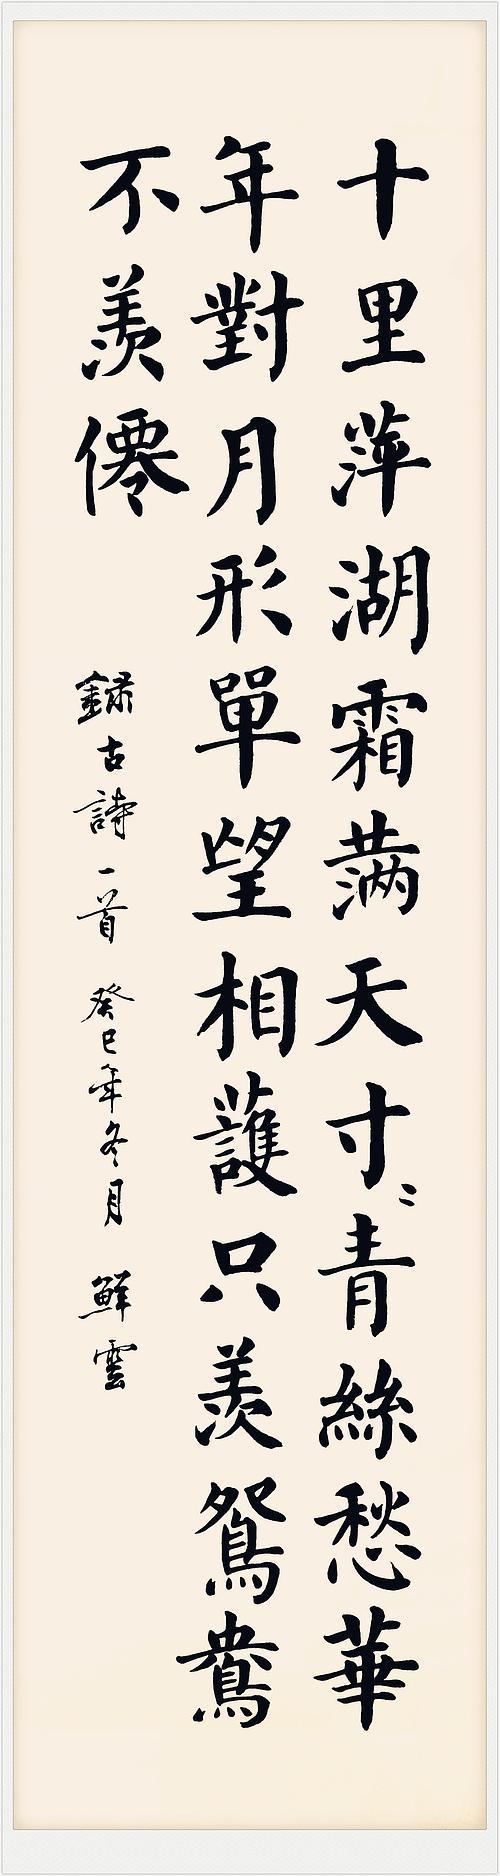 十里萍湖霜满天寸〻青絲愁華
年對月形單望相護只羨鴛鴦
不羨僊
録古詩一首 癸巳年冬月 鮮雲